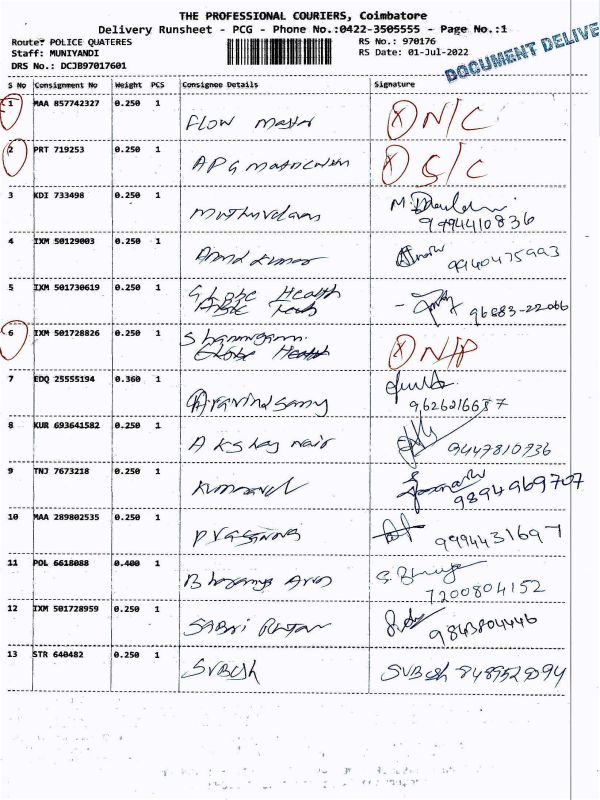 THE PROFESSIONAL COURIERS, Coimbatore
Delivery Runsheet - PCG - Phone No.:0422-3505555 - Page No.:1
Route: POLICE QUATERES
RS No.: 970176
Staff: MUNIYANDI
RS Date: 01-Jul-2022
DRS No.: DCJB97017601
DOCUMENT DELIVE
S No Consignment No Weight PCS Consignee Details Signature
1 MAA 857742327 0.250 1 FLOW N/C
2 PRT 719253 0.250 1 APG S/C
3 KDI 733498 0.250 1
9994410836
4 IXM 50129003 0.250 1 Kumar
9940475993
5 IXM 501730619 0.250 1 Globe Health
96883-22066
6 IXM 501728826 0.250 1
Globe Health
7 EDQ 25555194 0.360 1 Aravind Samy
9626216687
8 KUR 693641582 0.250 1 Akshay Nair
9447810736
9 TNJ 7673218 0.250 1
9894969707
10 MAA 289802535 0.250 1
9994431697
11 POL 6618088 0.400 1
7200804152
12 IXM 501728959 0.250 1 SABARI
9843804446
13 STR 640482 0.250 1 SUBASH